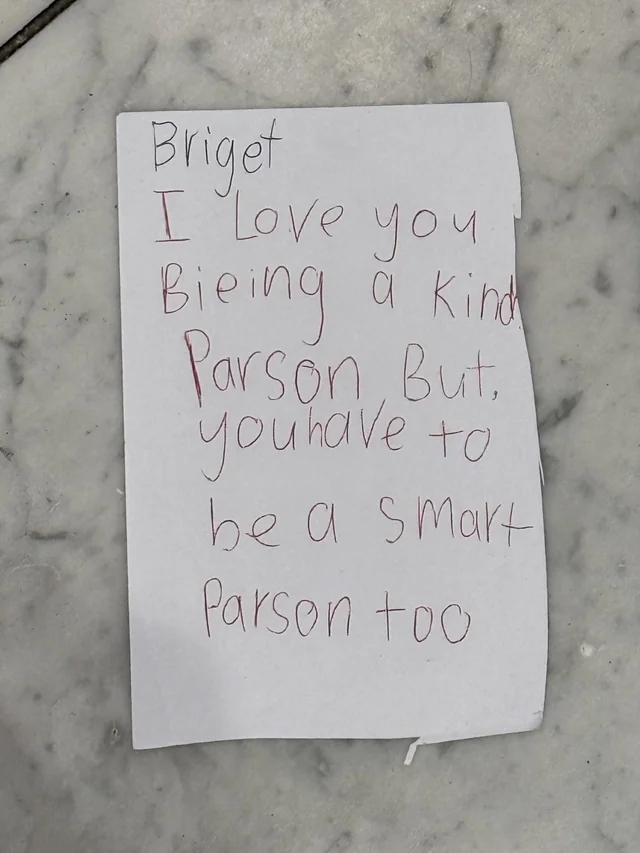 Briget
I Love you
Bieing a kind
Parson But,
youhave to
be a smart
Parson too